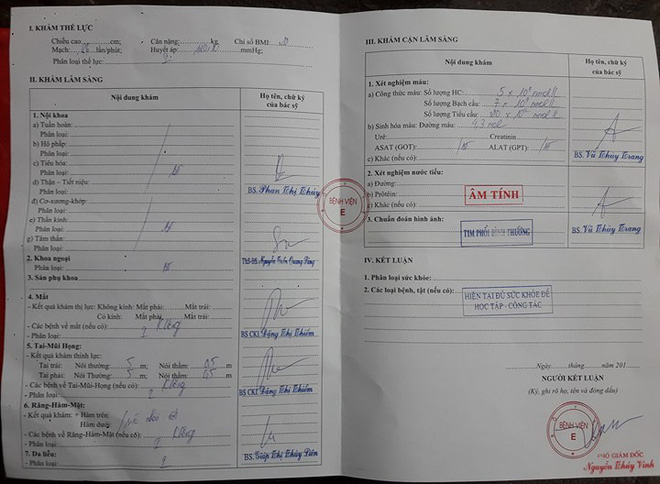 I. KHÁM THỂ LỰC
Chiều cao cm; Cân nặng: kg, Chỉ số BMI
Mạch: lần/phút; Huyết áp: mmHg;
Phân loại thể lực: 2
II. KHÁM LÂM SÀNG
Nội dung khám
Họ tên, chữ ký của bác sỹ
1. Nội khoa
a) Tuần hoàn:
Phân loại:
b) Hô hấp:
Phân loại:
c) Tiêu hóa:
Phân loại:
d) Thận – Tiết niệu:
Phân loại:
đ) Cơ-xương-khớp:
Phân loại:
e) Thần kinh:
Phân loại:
g) Tâm thần:
Phân loại:
BS. Phan Thị Thúy
2. Khoa ngoại
Phân loại:
3. Sản phụ khoa
4. Mắt
- Kết quả khám thị lực: Không kính: Mắt phải: Mắt trái:
Có kính: Mắt phải: Mắt trái:
- Các bệnh về mắt (nếu có): Không
- Phân loại: 2
BS CKI. Đặng Thị Thiềm
5. Tai-Mũi Họng:
- Kết quả khám thính lực:
Tai trái: Nói thường: 5 m; Nói thầm: 0,5 m
Tai phải: Nói Thường: 5 m; Nói thầm: 0,5 m
- Các bệnh về Tai-Mũi-Họng (nếu có): Không
- Phân loại: 2
BS CKI. Đặng Thị Thiềm
6. Răng-Hàm-Mặt:
- Kết quả khám: + Hàm trên:
Hàm dưới:
- Các bệnh về Răng-Hàm-Mặt (nếu có): Không
- Phân loại: 2
7. Da liễu:
- Phân loại: 2
BỆNH VIỆN
E
III. KHÁM CẬN LÂM SÀNG
Nội dung khám
Họ tên, chữ ký của bác sỹ
1. Xét nghiệm máu:
a) Công thức máu: Số lượng HC:
Số lượng Bạch cầu:
Số lượng Tiểu cầu:
b) Sinh hóa máu: Đường máu:
Urê: Creatinin
ASAT (GOT): ALAT (GPT):
c) Khác (nếu có):
BS. Vũ Thùy Trang
2. Xét nghiệm nước tiểu:
a) Đường:
b) Prôtêin:
c) Khác (nếu có):
ÂM TÍNH
BS. Vũ Thùy Trang
3. Chuẩn đoán hình ảnh:
TIM PHỔI BÌNH THƯỜNG
IV. KẾT LUẬN
1. Phân loại sức khỏe:
2. Các loại bệnh, tật (nếu có):
HIỆN TẠI ĐỦ SỨC KHỎE ĐỂ
HỌC TẬP - CÔNG TÁC
Ngày tháng năm 201
NGƯỜI KẾT LUẬN
(Ký, ghi rõ họ, tên và đóng dấu)
BỆNH VIỆN
E
PHÓ GIÁM ĐỐC
Nguyễn Thúy Vinh